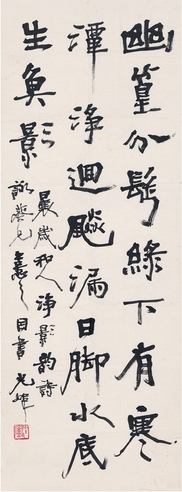 幽篁分綠下有寒
潭淨迴飈漏日脚水底
生魚影
曩歲和人淨影韵詩
兄喜之因書光煒